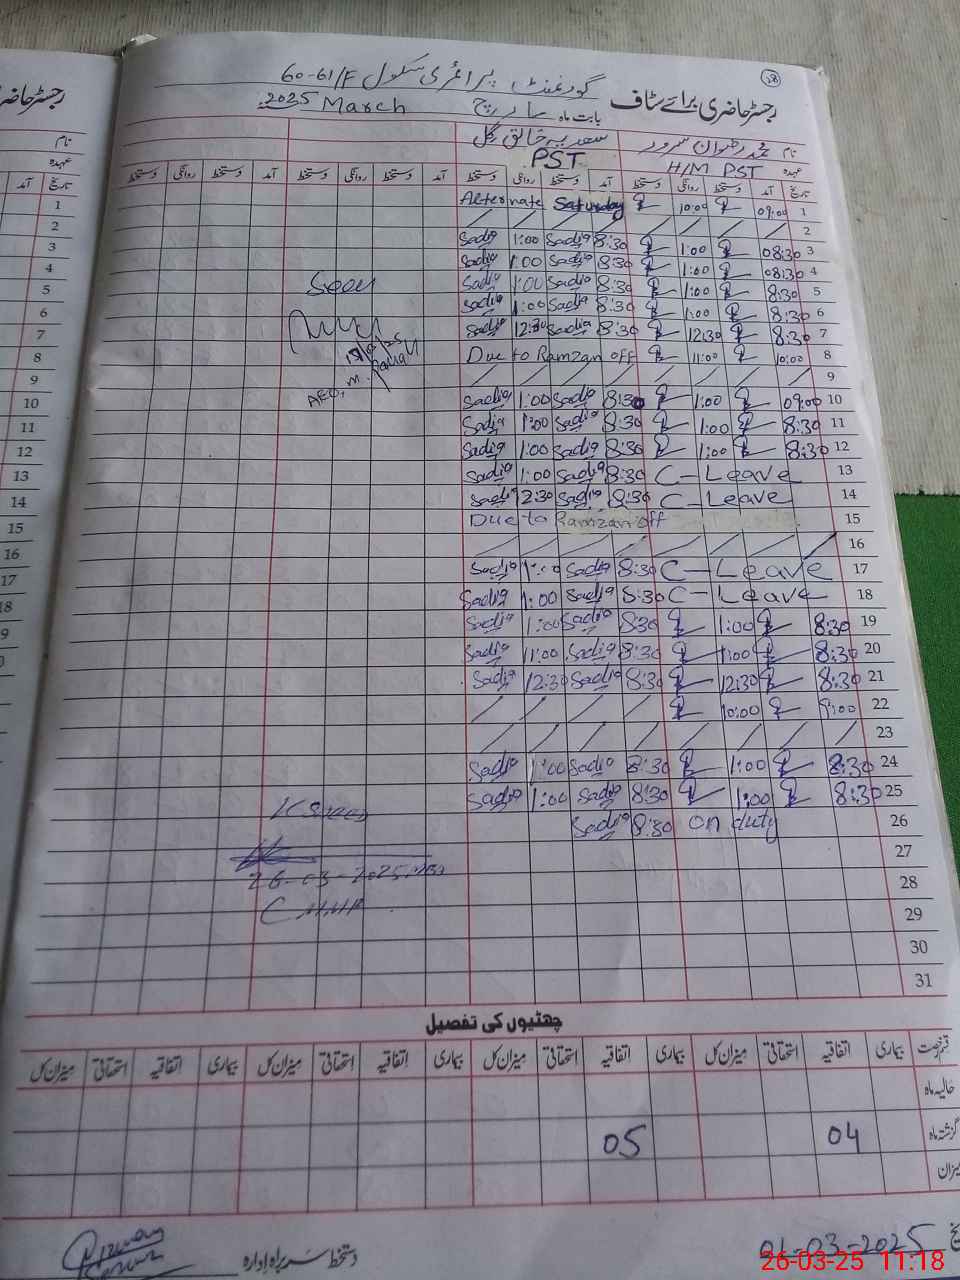 28
رجسٹر حاضری برائے سٹاف گورنمنٹ پرائمری سکول 60-61/F
بابت ماہ مارچ March 2025
نام محمد رضوان سرور سعدیہ خالق گل
عہدہ H/M PST PST
تاریخ آمد دستخط روانگی دستخط آمد دستخط روانگی دستخط آمد دستخط روانگی دستخط آمد دستخط روانگی دستخط
1 09:00 10:00 Alternate Saturday
2
3 08:30 1:00 8:30 Sadia 1:00 Sadia
4 08:30 1:00 8:30 Sadia 1:00 Sadia
5 8:30 1:00 8:30 Sadia 1:00 Sadia
6 8:30 1:00 8:30 Sadia 1:00 Sadia
7 8:30 12:30 8:30 Sadia 12:30 Sadia
8 10:00 11:00 Due to Ramzan off
9
10 09:00 1:00 8:30 Sadia 1:00 Sadia
11 8:30 1:00 8:30 Sadia 1:00 Sadia
12 8:30 1:00 8:30 Sadia 1:00 Sadia
13 C-Leave 8:30 Sadia 1:00 Sadia
14 C-Leave 8:30 Sadia 2:30 Sadia
15 Due to Ramzan off
16
17 C-Leave 8:30 Sadia 1:00 Sadia
18 C-Leave 8:30 Sadia 1:00 Sadia
19 8:30 1:00 8:30 Sadia 1:00 Sadia
20 8:30 1:00 8:30 Sadia 11:00 Sadia
21 8:30 12:30 8:30 Sadia 12:30 Sadia
22 9:00 10:00
23
24 8:30 1:00 8:30 Sadia 1:00 Sadia
25 8:30 1:00 8:30 Sadia 1:00 Sadia
26 on duty 8:30 Sadia
27
28
29
30
31
Seen
AEO
26-03-2025
چھٹیوں کی تفصیل
قسم رخصت بیماری اتفاقیہ استحقاقی میزان کل بیماری اتفاقیہ استحقاقی میزان کل بیماری اتفاقیہ استحقاقی میزان کل بیماری اتفاقیہ استحقاقی میزان کل
حالیہ ماہ
گزشتہ ماہ 04 05
میزان
01-03-2025 دستخط سربراہ ادارہ
26-03-25 11:18
رجسٹر حاضری
نام
عہدہ
تاریخ آمد
1
2
3
4
5
6
7
8
9
10
11
12
13
14
15
16
17